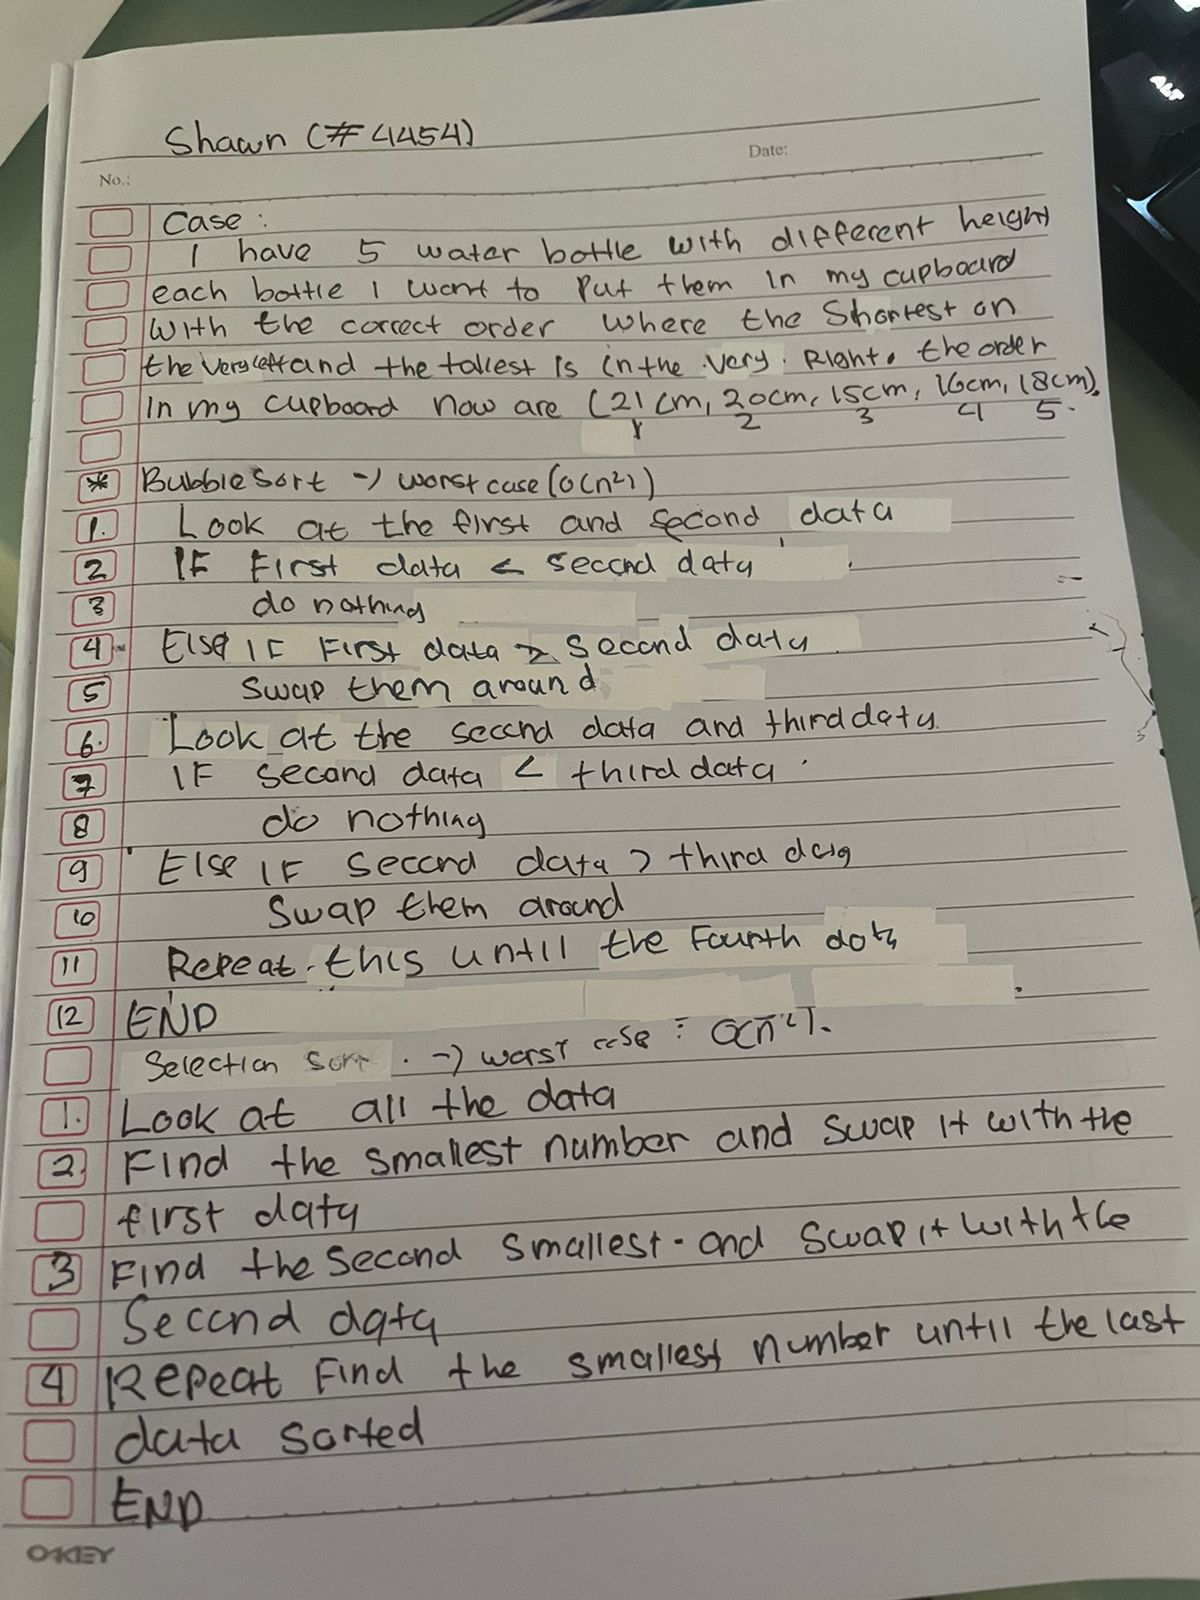 Shawn (#4454)
No.:
Date:
Case :
I have 5 water bottle with different height
each bottle I want to Put them in my cupboard
With the correct order Where the Shortest on
the very left and the tallest is in the very Right. the order
In my cupboard now are (21 cm, 20cm, 15cm, 16cm, 18cm).
1 2 3 4 5.
* Bubble Sort -> worst case (O(n²))
1. Look at the first and second data
2 IF First data < second data
3 do nothing
4 Else IF First data > second data
5 Swap them around
6. Look at the second data and third data.
7 IF second data < third data
8 do nothing
9 Else IF second data > third data
10 Swap them around
11 Repeat this until the Fourth data
12 END
Selection Sort -> worst case = O(n²).
1. Look at all the data
2. Find the smallest number and swap it with the
first data
3 Find the second smallest and swap it with the
Second data
4 Repeat Find the smallest number until the last
data sorted
END
OKEY
ALT